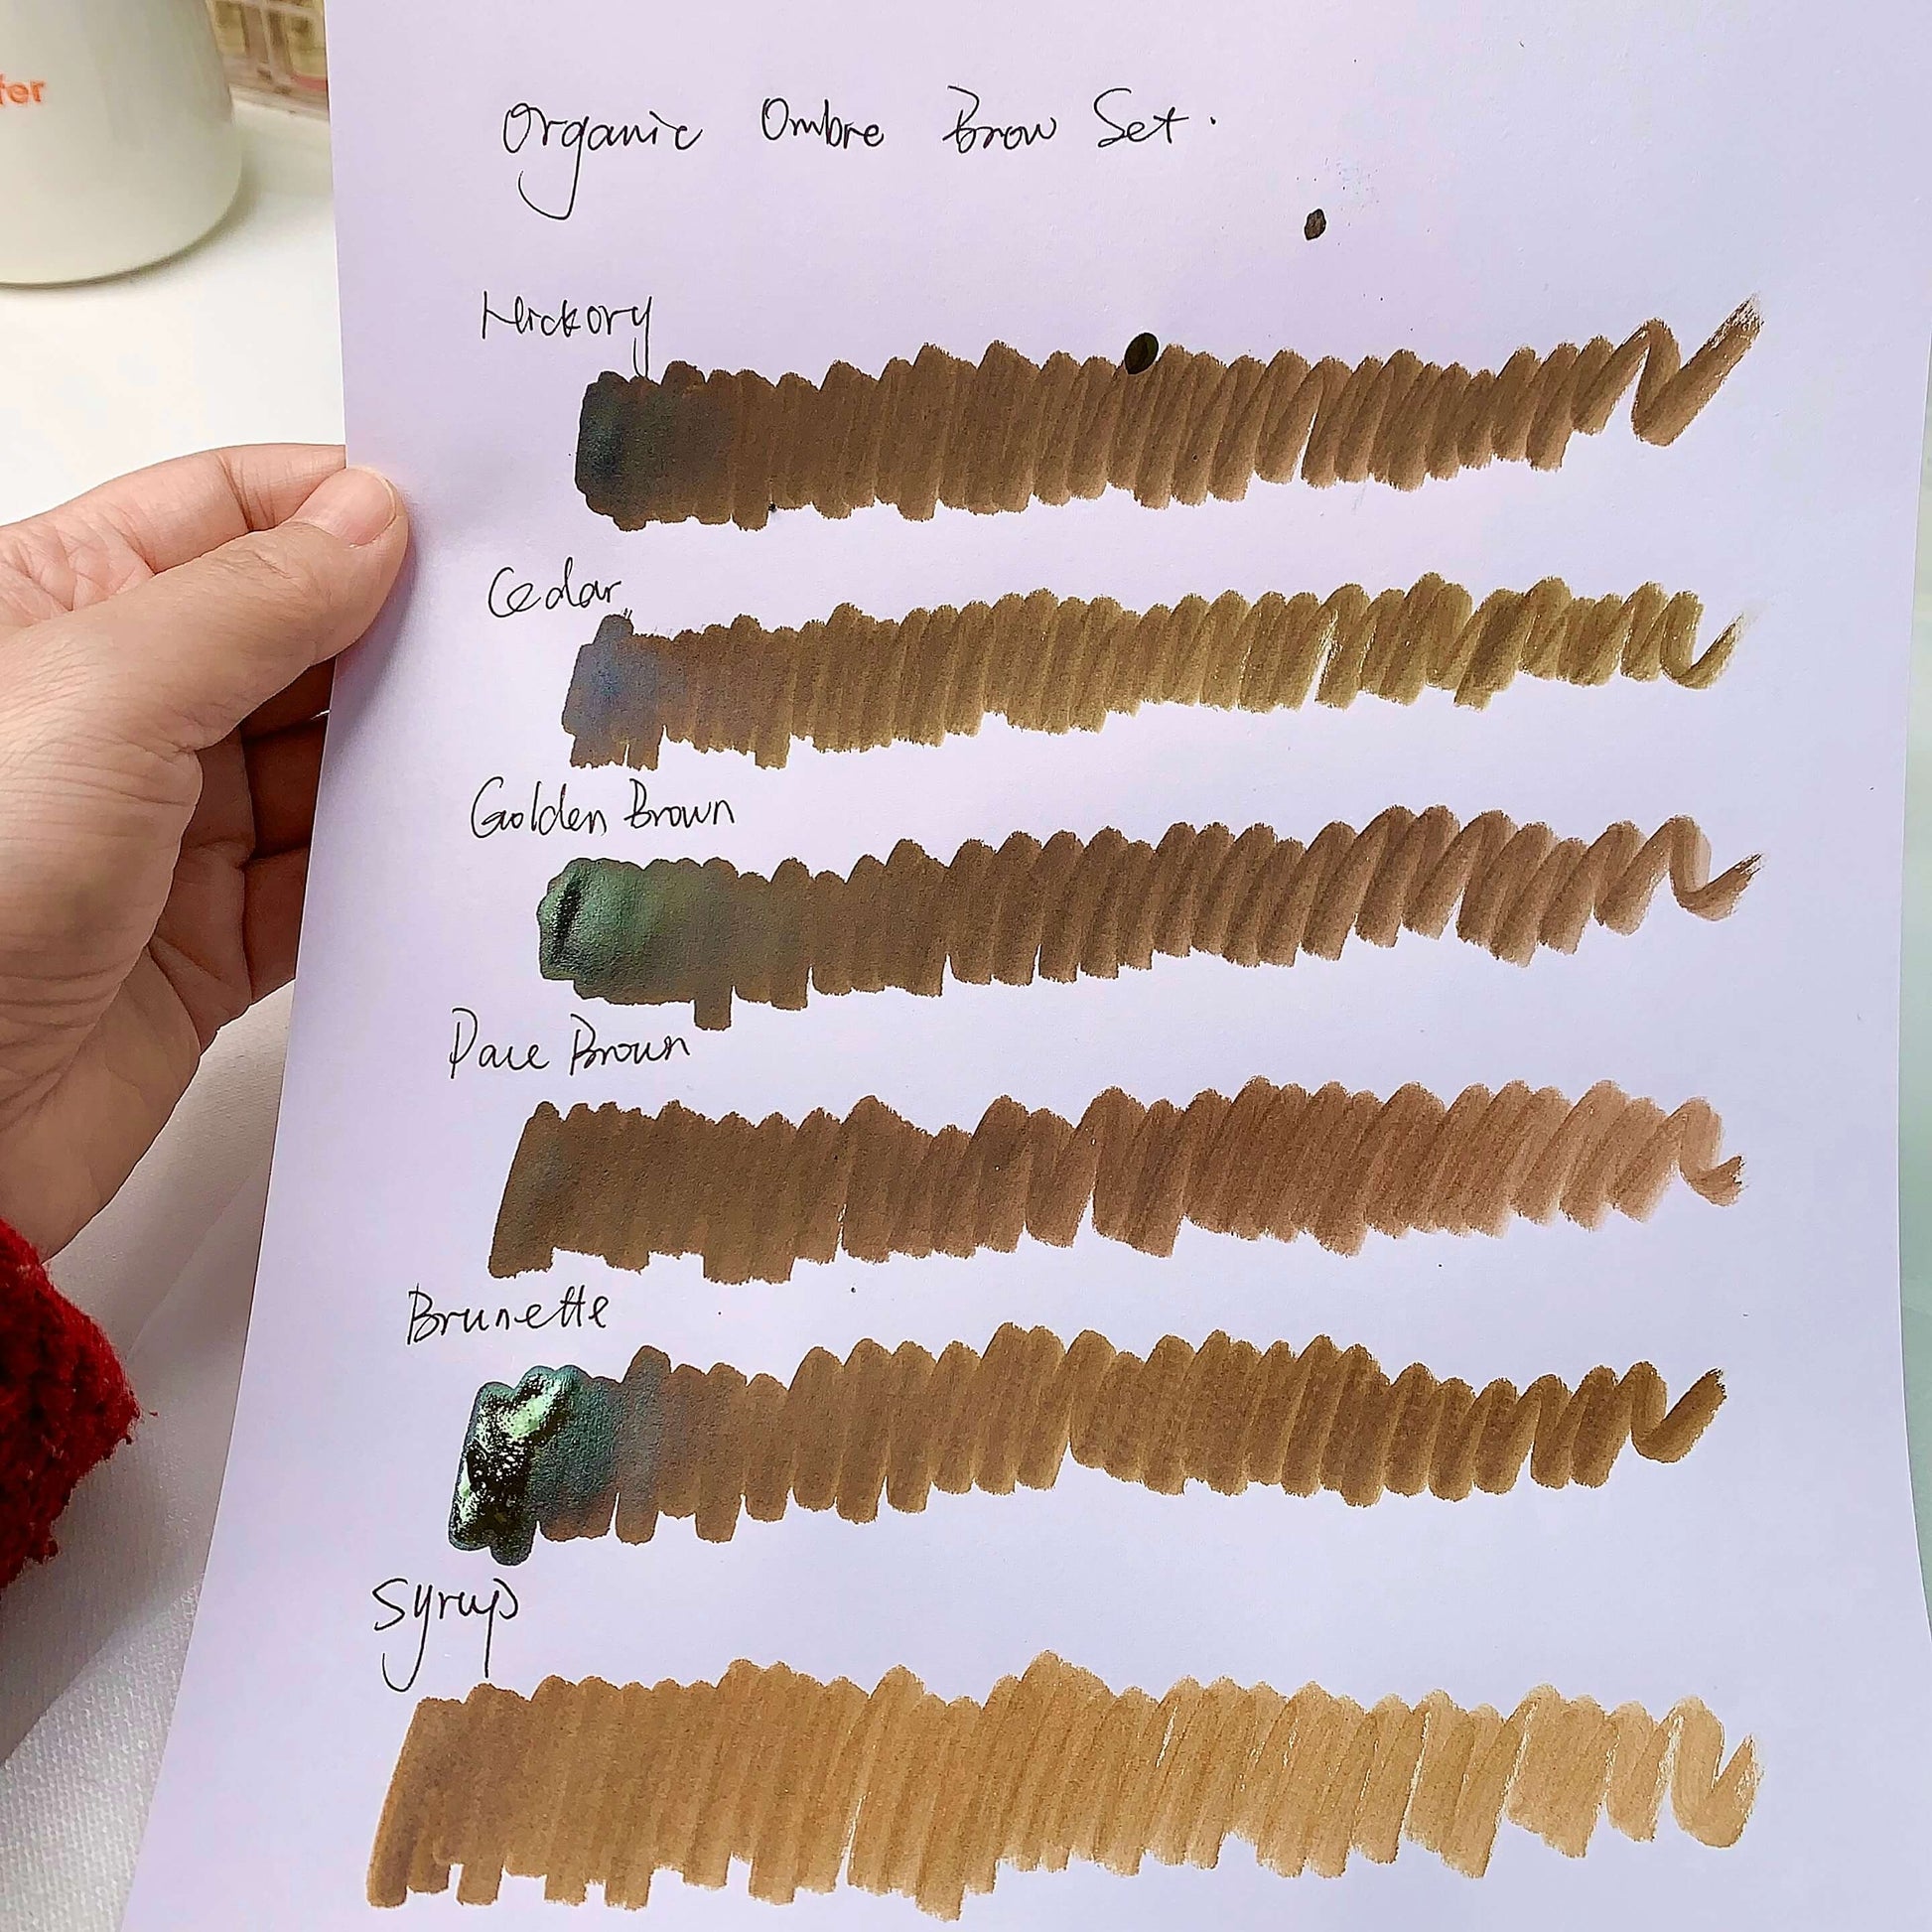 fer
Organic Ombre Brow Set.
Hickory
Cedar
Golden Brown
Brown
Brunette
Syrup